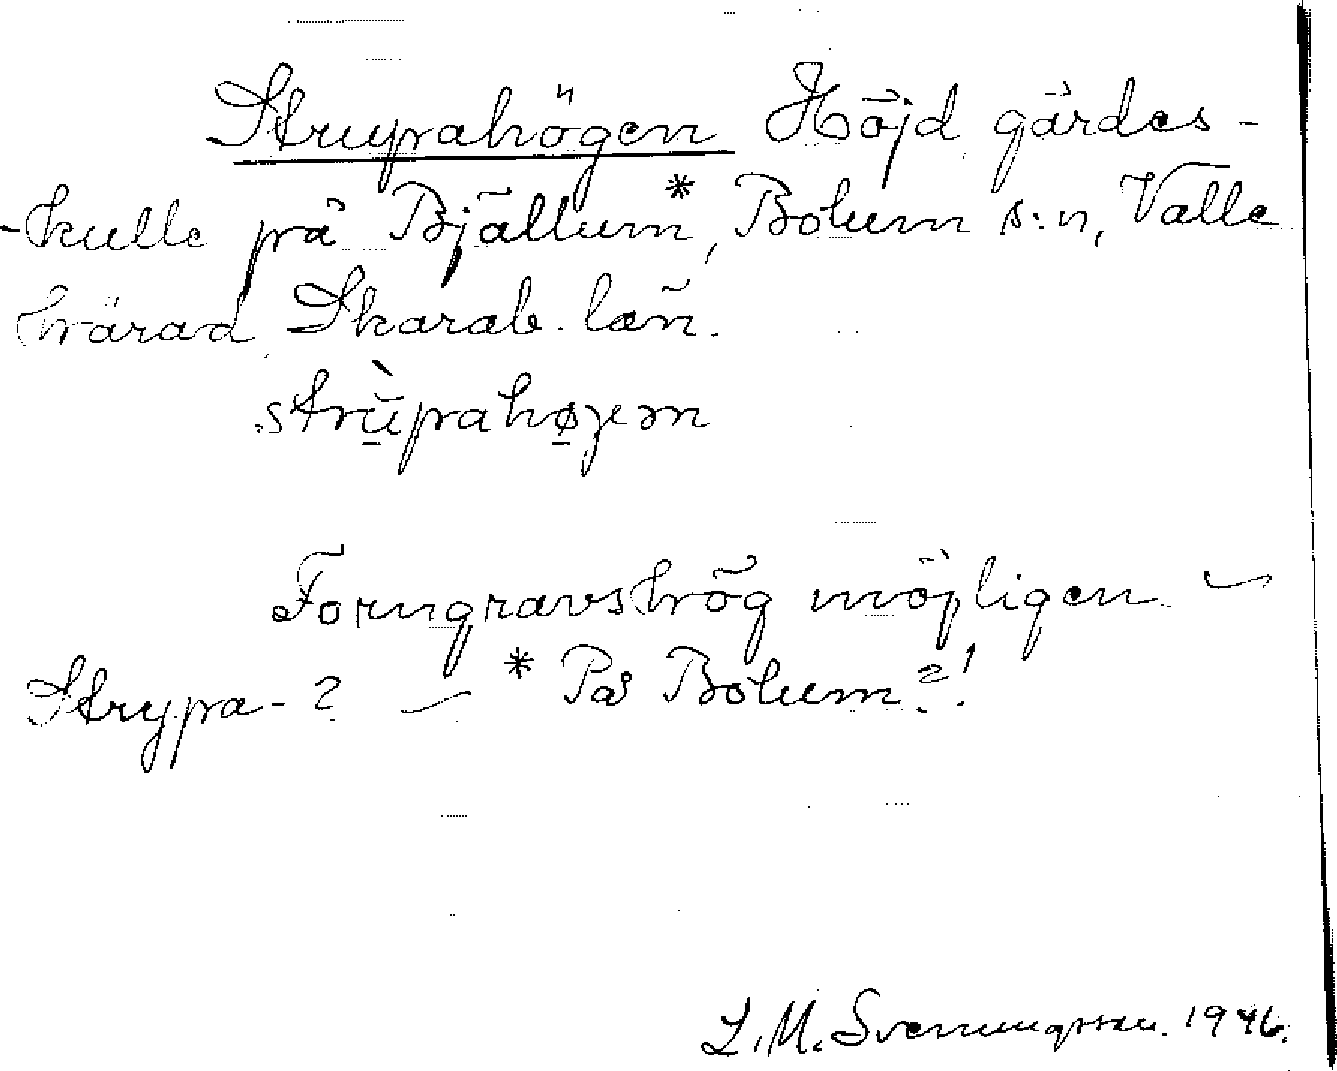 Strupahögen Höjd gärdes-
-kulle på Bjällum*, Bolum s:n, Valle
härad Skarab. län.
strùpahøgen
Forngravshög möjligen –
Strypa-? – * På Bolum?!
L. M. Svenungsson. 1946.